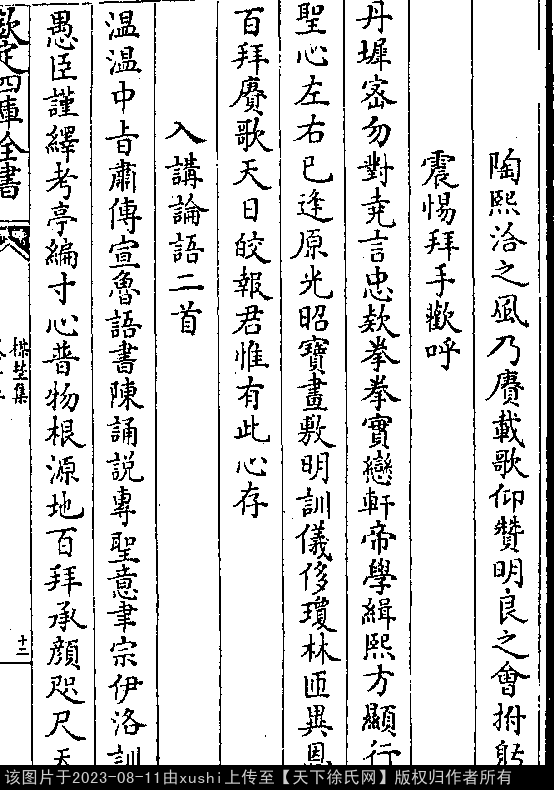 陶熙洽之風乃賡載歌仰贊明良之會拊躬
震惕拜手歡呼
丹墀宻勿對堯言忠欵拳拳實戀軒帝學緝熙方顯行
聖心左右已逢原光昭寶畫敷明訓儀侈瓊林匝異恩
百拜賡歌天日皎報君惟有此心存
入講論語二首
温温中㫖肅傳宣魯語書陳誦説専聖意聿宗伊洛訓
愚臣謹繹考亭編寸心普物根源地百拜承顔咫尺天
欽定四庫全書
楳埜集
十二
该图片于2023-08-11由xushi上传至【天下徐氏网】版权归作者所有